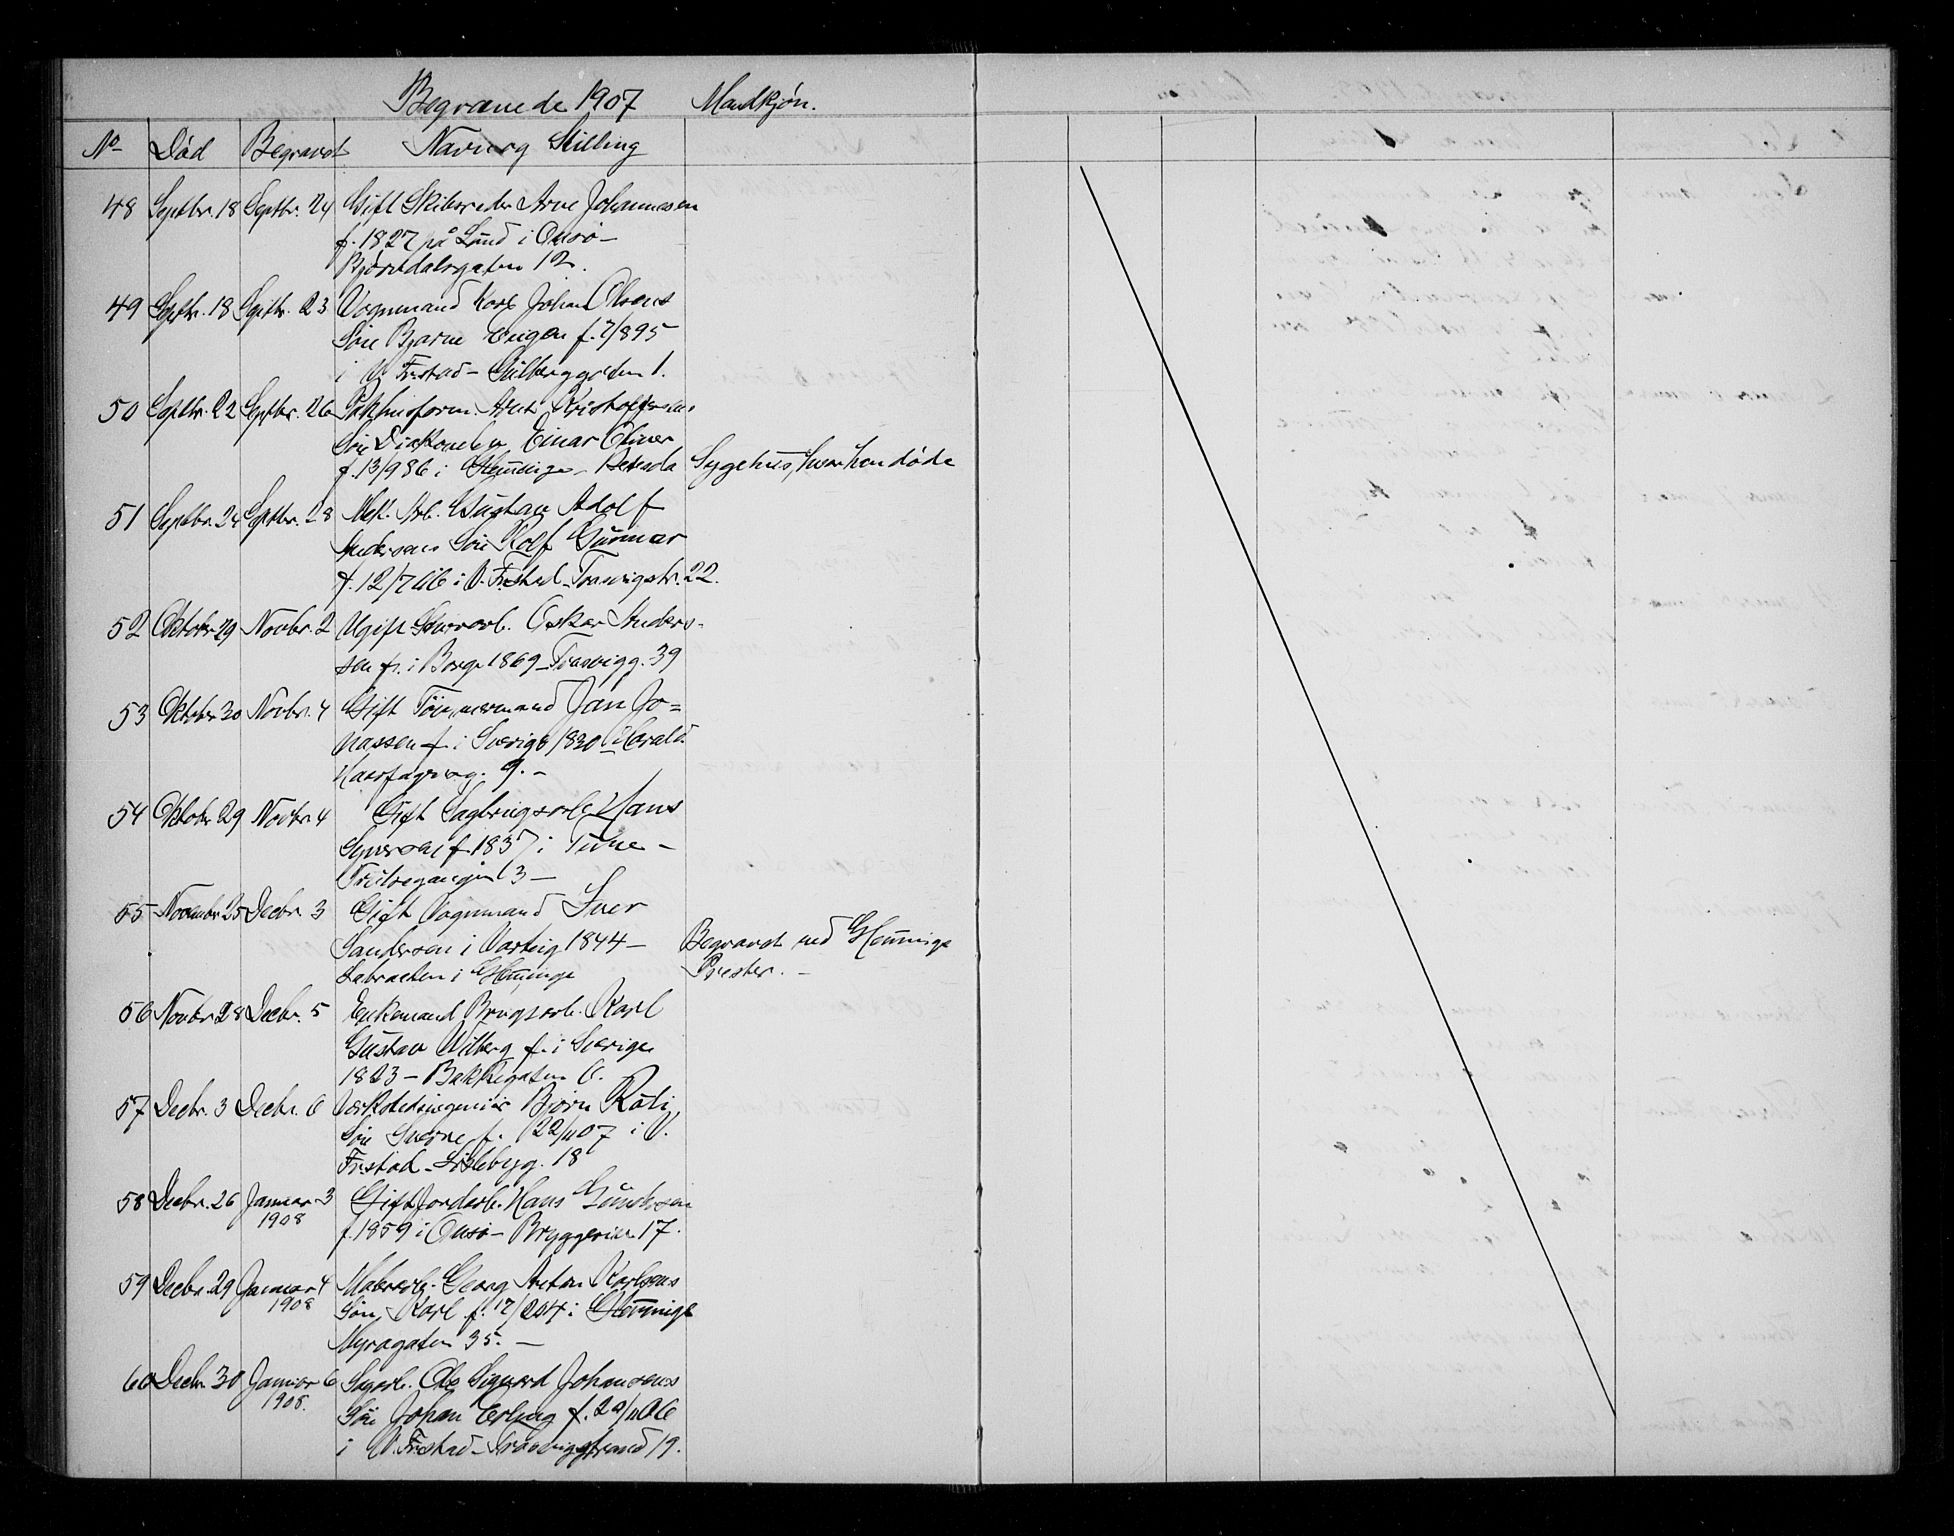 Begravede 1907 Mandkjøn.
No Død Begravet Navn og Stilling
48 Septbr. 18 Septbr. 24 Gift Skibsreder Arne Johannesen
f. 1827 på Lund i Onsø –
Bjørndalsgaten 12.
49 Septbr. 18 Septbr. 23 Vognmand Karl Johan Olsens
Søn Bjarne Eugen f. 7/895
i V. Frstad – 1.
50 Septbr. 22 Septbr. 26 Pakhusform. Kristoffersens
Søn Einar Oliver
f. 13/986 i Glemminge – Betesda Sygehus, hvor han døde
51 Septbr. 24 Septbr. 28 Mek. Arb. Gustav Adolf
Andersens Søn Rolf Gunnar
f. 12/706 i V. Frstad – Trosvigstr. 22.
52 Oktober 29 Novbr. 2 Ugift Oskar Anders-
sen f. i Borge 1869 – Trosvigg. 39
53 Oktober 30 Novbr. 4 Gift Tømmermand Jan Jo=
nassen f. i Sverige 1830 – Harald
Haarfagresg. 9. –
54 Oktober 29 Novbr 4 Gift Sagbrugsarb. Hans
Syversen f. 1837 i Tune –
3 –
55 Novembr 25 Decbr. 3 Gift Vognmand Iver
Sandersen i Varteig 1844 – Begravet ved Glemminge
i Glemminge Prester. –
56 Novbr 28 Decbr. 5 Enkemand Brugsarb. Karl
Gustav Wilberg f. i Sverige
1823 – Bakkegaten 6.
57 Decbr. 3 Decbr. 6 Verkstedsingeniør Bjørn
Søn Sverre f. 22/1107 i V.
Frstad – Lislebyg. 18
58 Decbr. 26 Januar 3 Gift Jordarb. Hans Gundersen
1908 f. 1859 i Onsø – Bryggerier 17.
59 Decbr. 29 Januar 4 Georg Anton Karlsens
1908 Søn Karl f. 17/204 i Glemminge
Myragaten 35. –
60 Decbr. 30 Januar 6 Sagarb. Ole Sigvard Johansens
1908. Søn Johan Erling f. 20/1106
i V. Frstad – Trosvigstrand 19.